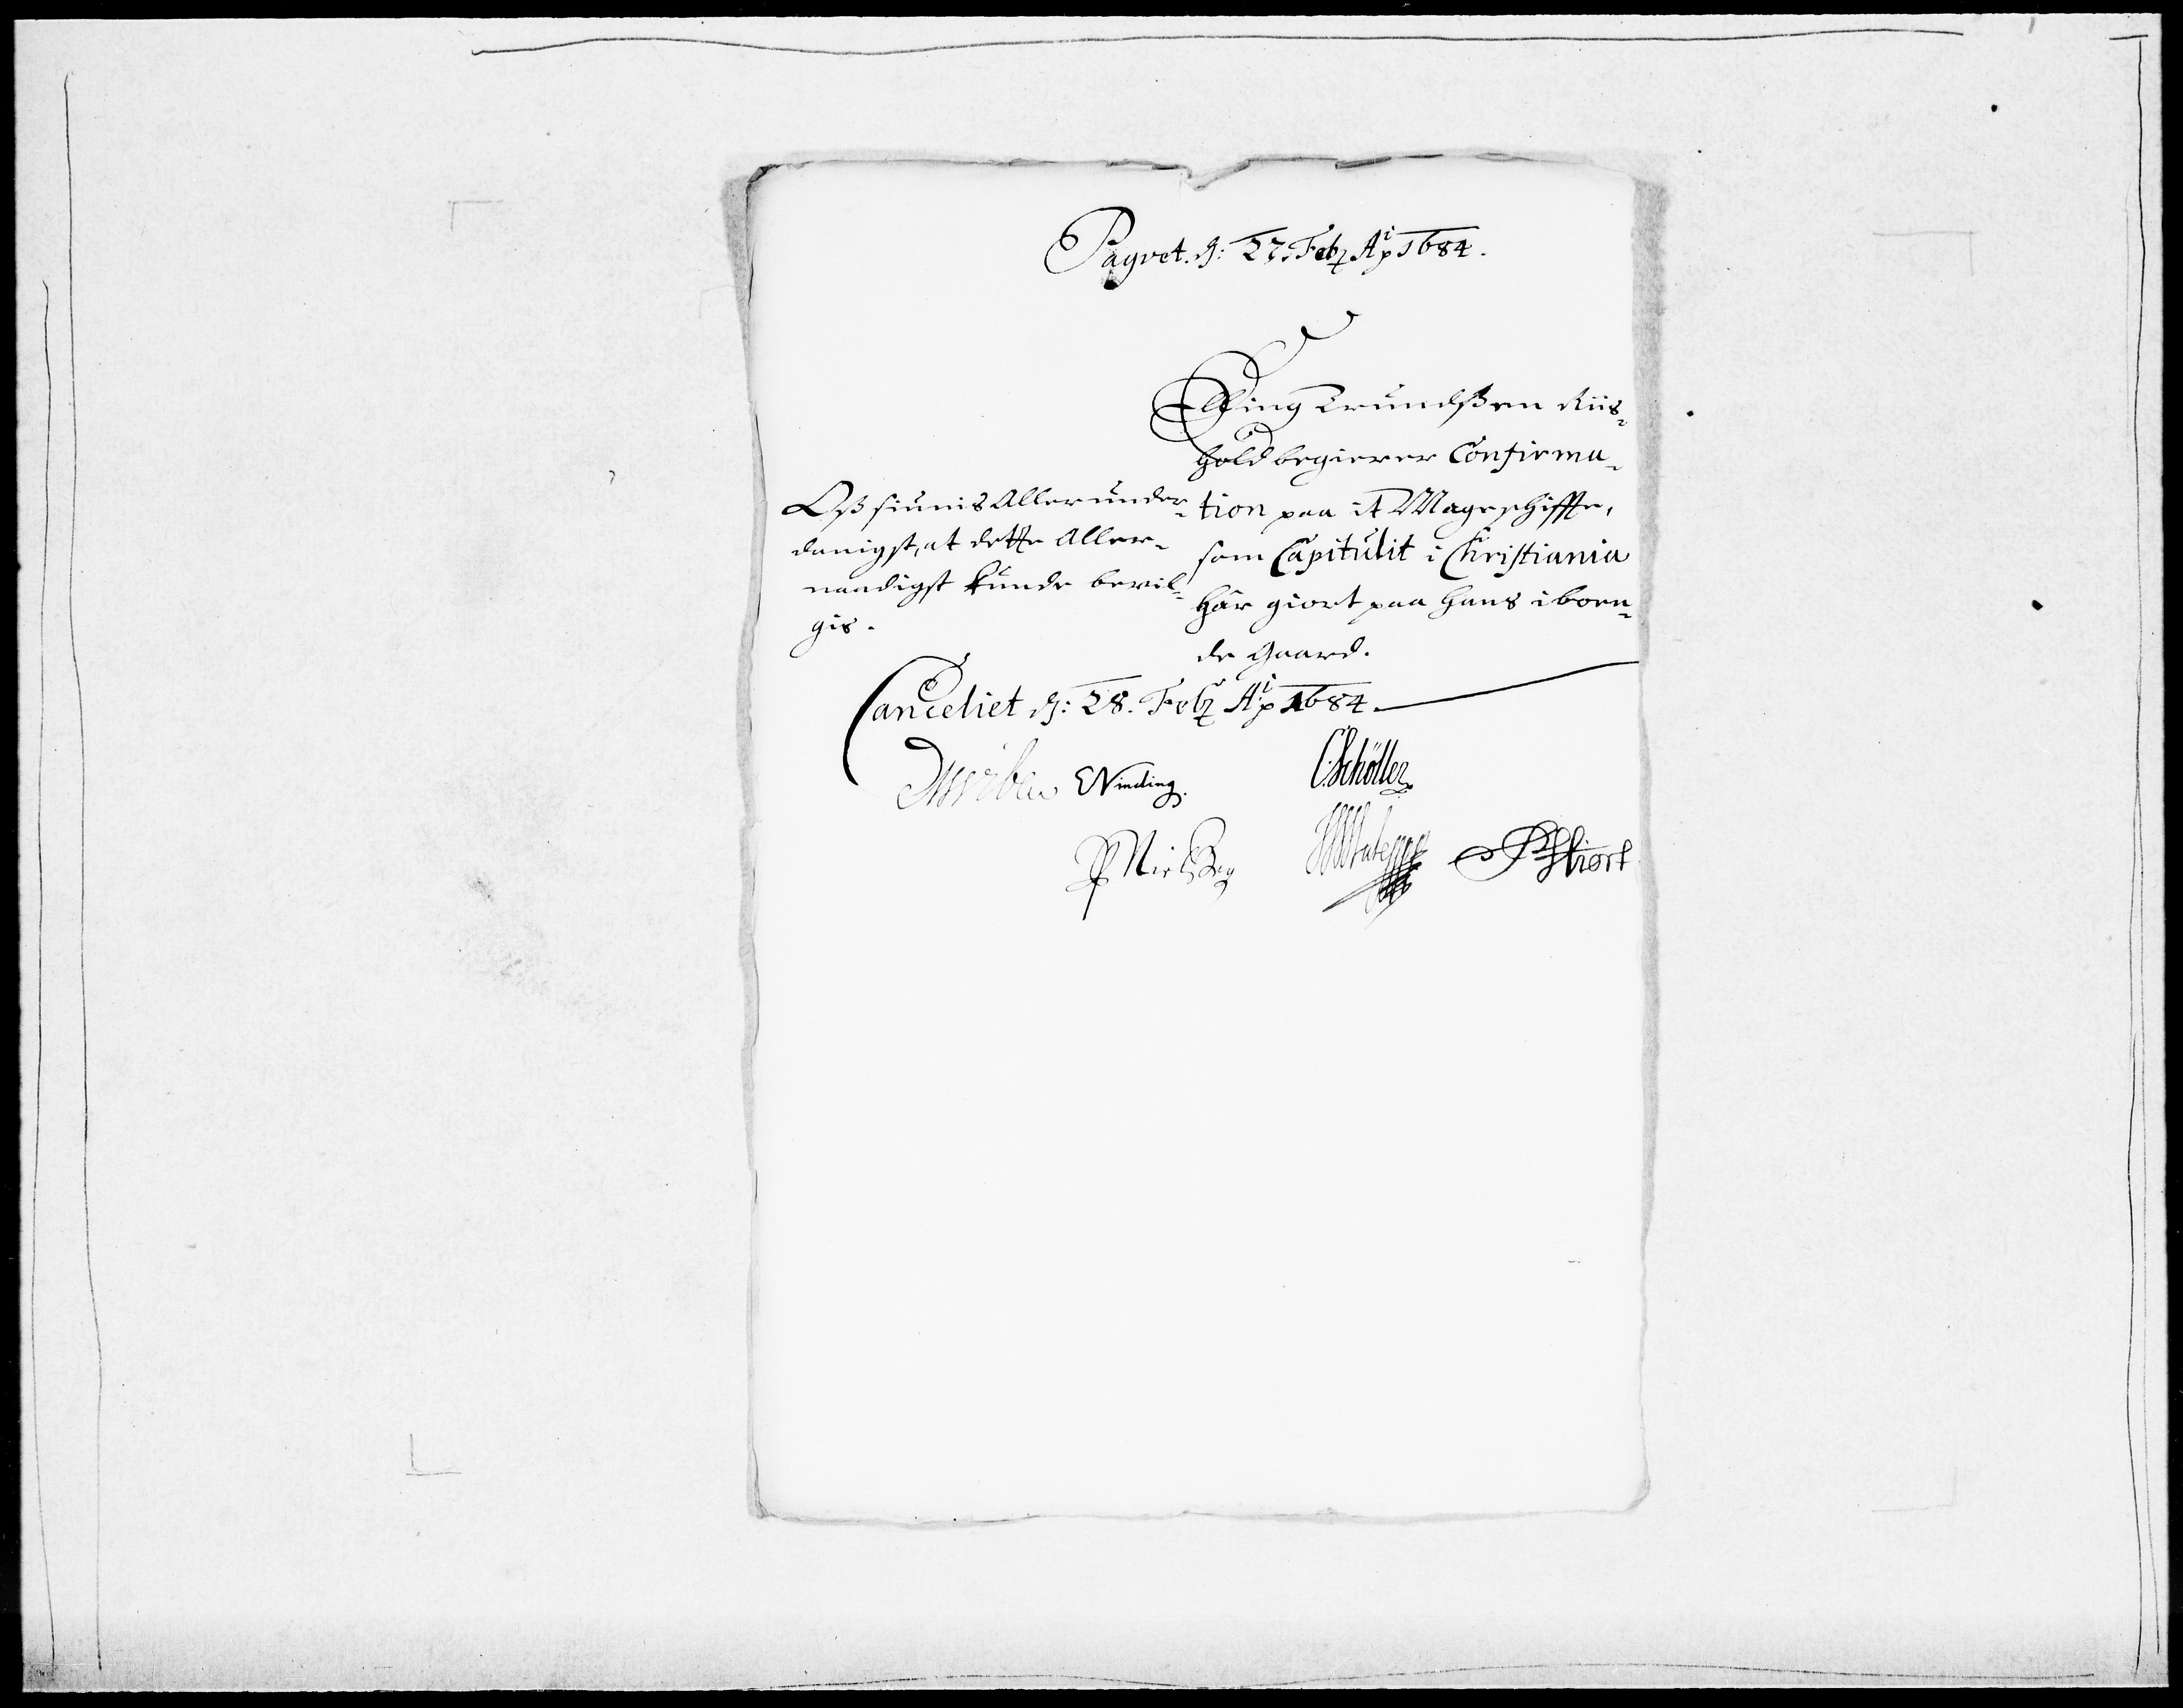 Pagvet. d: 27. Feb. Ao 1684.
Elling Trundssen Riis¬
hold begierer Confirma¬
tion paa it Mageschiffte,
som Capitulit i Christiania
har giort paa hans iboen¬
de Gaard.
Oss siunis Allerunder¬
danigst, at dette Aller¬
naadigst kunde bevil¬
gis.
Canceliet d: 28. Feb. Ao 1684.
Wibe EVinding. C. Schöller
Hiort